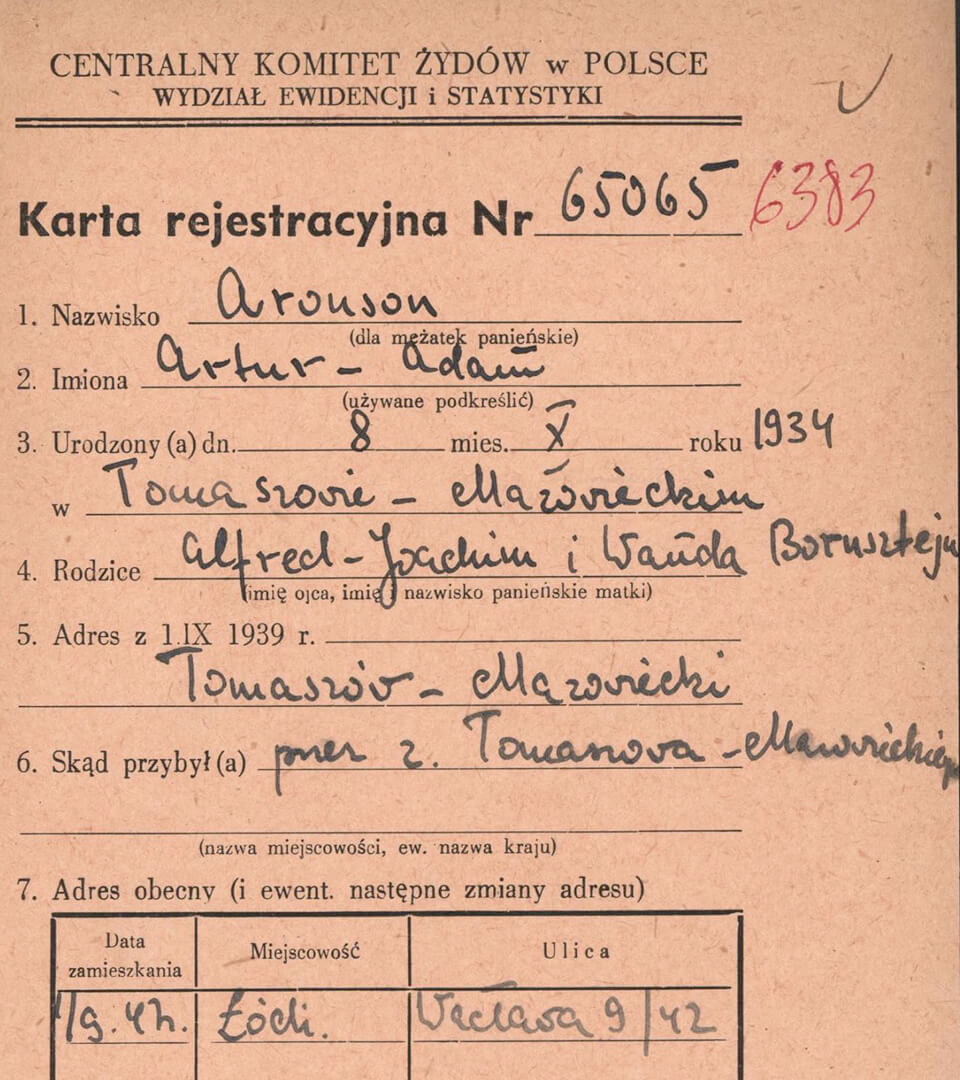 CENTRALNY KOMITET ŻYDÓW w POLSCE
WYDZIAŁ EWIDENCJI i STATYSTYKI
Karta rejestracyjna Nr 65065 6383
1. Nazwisko Aronson
(dla mężatek panieńskie)
2. Imiona Artur - Adam
(używane podkreślić)
3. Urodzony (a) dn. 8 mies. X roku 1934
w Tomaszowie - Mazowieckim
4. Rodzice Alfred - Joachim i Wanda Borusztejn
(imię ojca, imię i nazwisko panieńskie matki)
5. Adres z 1.IX 1939 r.
Tomaszów - Mazowiecki
6. Skąd przybył (a) z. Tomaszowa - Mazowieckiego
(nazwa miejscowości, ew. nazwa kraju)
7. Adres obecny (i ewent. następne zmiany adresu)
Data zamieszkania Miejscowość Ulica
Łódź. 9/42